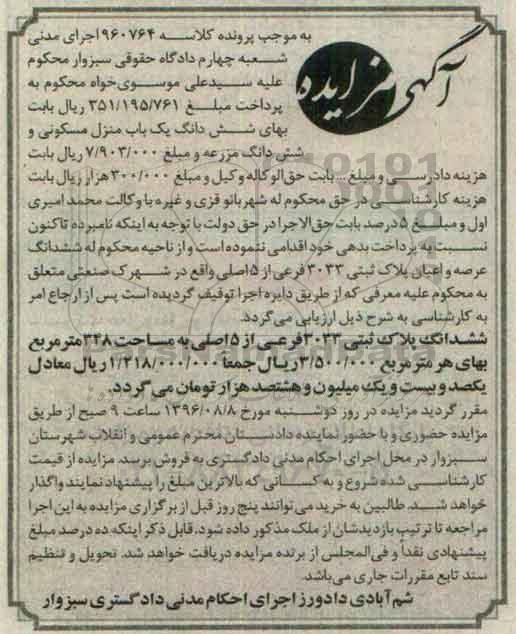 آگهی مزایده
به موجب پرونده کلاسه ۹۶۰۷۶۴ اجرای مدنی
شعبه چهارم دادگاه حقوقی سبزوار محکوم
علیه سیدعلی موسوی‌خواه محکوم به
پرداخت مبلغ ۳۵۱/۱۹۵/۷۶۱ ریال بابت
بهای شش دانگ یک باب منزل مسکونی و
شش دانگ مزرعه و مبلغ ۷/۹۰۳/۰۰۰ ریال بابت
هزینه دادرسی و مبلغ... بابت حق‌الوکاله وکیل و مبلغ ۳۰۰/۰۰۰ هزار ریال بابت
هزینه کارشناسی در حق محکوم له شهربانو قزی و غیره با وکالت محمد امیری
اول و مبلغ ۵درصد بابت حق‌الاجرا در حق دولت با توجه به اینکه نامبرده تاکنون
نسبت به پرداخت بدهی خود اقدامی ننموده است و از ناحیه محکوم له ششدانگ
عرصه و اعیان پلاک ثبتی ۳۰۳۳ فرعی از ۵اصلی واقع در شهرک صنعتی متعلق
به محکوم علیه معرفی که از طریق دایره اجرا توقیف گردیده است پس از ارجاع امر
به کارشناسی به شرح ذیل ارزیابی می‌گردد.
ششدانگ پلاک ثبتی ۳۰۳۳فرعی از ۵اصلی به مساحت ۳۴۸مترمربع
بهای هر متر مربع ۳/۵۰۰/۰۰۰ریال جمعا ۱/۲۱۸/۰۰۰/۰۰۰ریال معادل
یکصد و بیست و یک میلیون و هشتصد هزار تومان می گردد.
مقرر گردید مزایده در روز دوشنبه مورخ ۱۳۹۶/۰۸/۸ ساعت ۹ صبح از طریق
مزایده حضوری و با حضور نماینده دادستان محترم عمومی و انقلاب شهرستان
سبزوار در محل اجرای احکام مدنی دادگستری به فروش برسد. مزایده از قیمت
کارشناسی شده شروع و به کسانی که بالاترین مبلغ را پیشنهاد نمایند واگذار
خواهد شد. طالبین به خرید می‌توانند پنج روز قبل از برگزاری مزایده به این اجرا
مراجعه تا ترتیب بازدیدشان از ملک مذکور داده شود. قابل ذکر اینکه ده درصد مبلغ
پیشنهادی نقداً و فی‌المجلس از برنده مزایده دریافت خواهد شد. تحویل و تنظیم
سند تابع مقررات جاری می‌باشد.
شم‌آبادی دادورز اجرای احکام مدنی دادگستری سبزوار